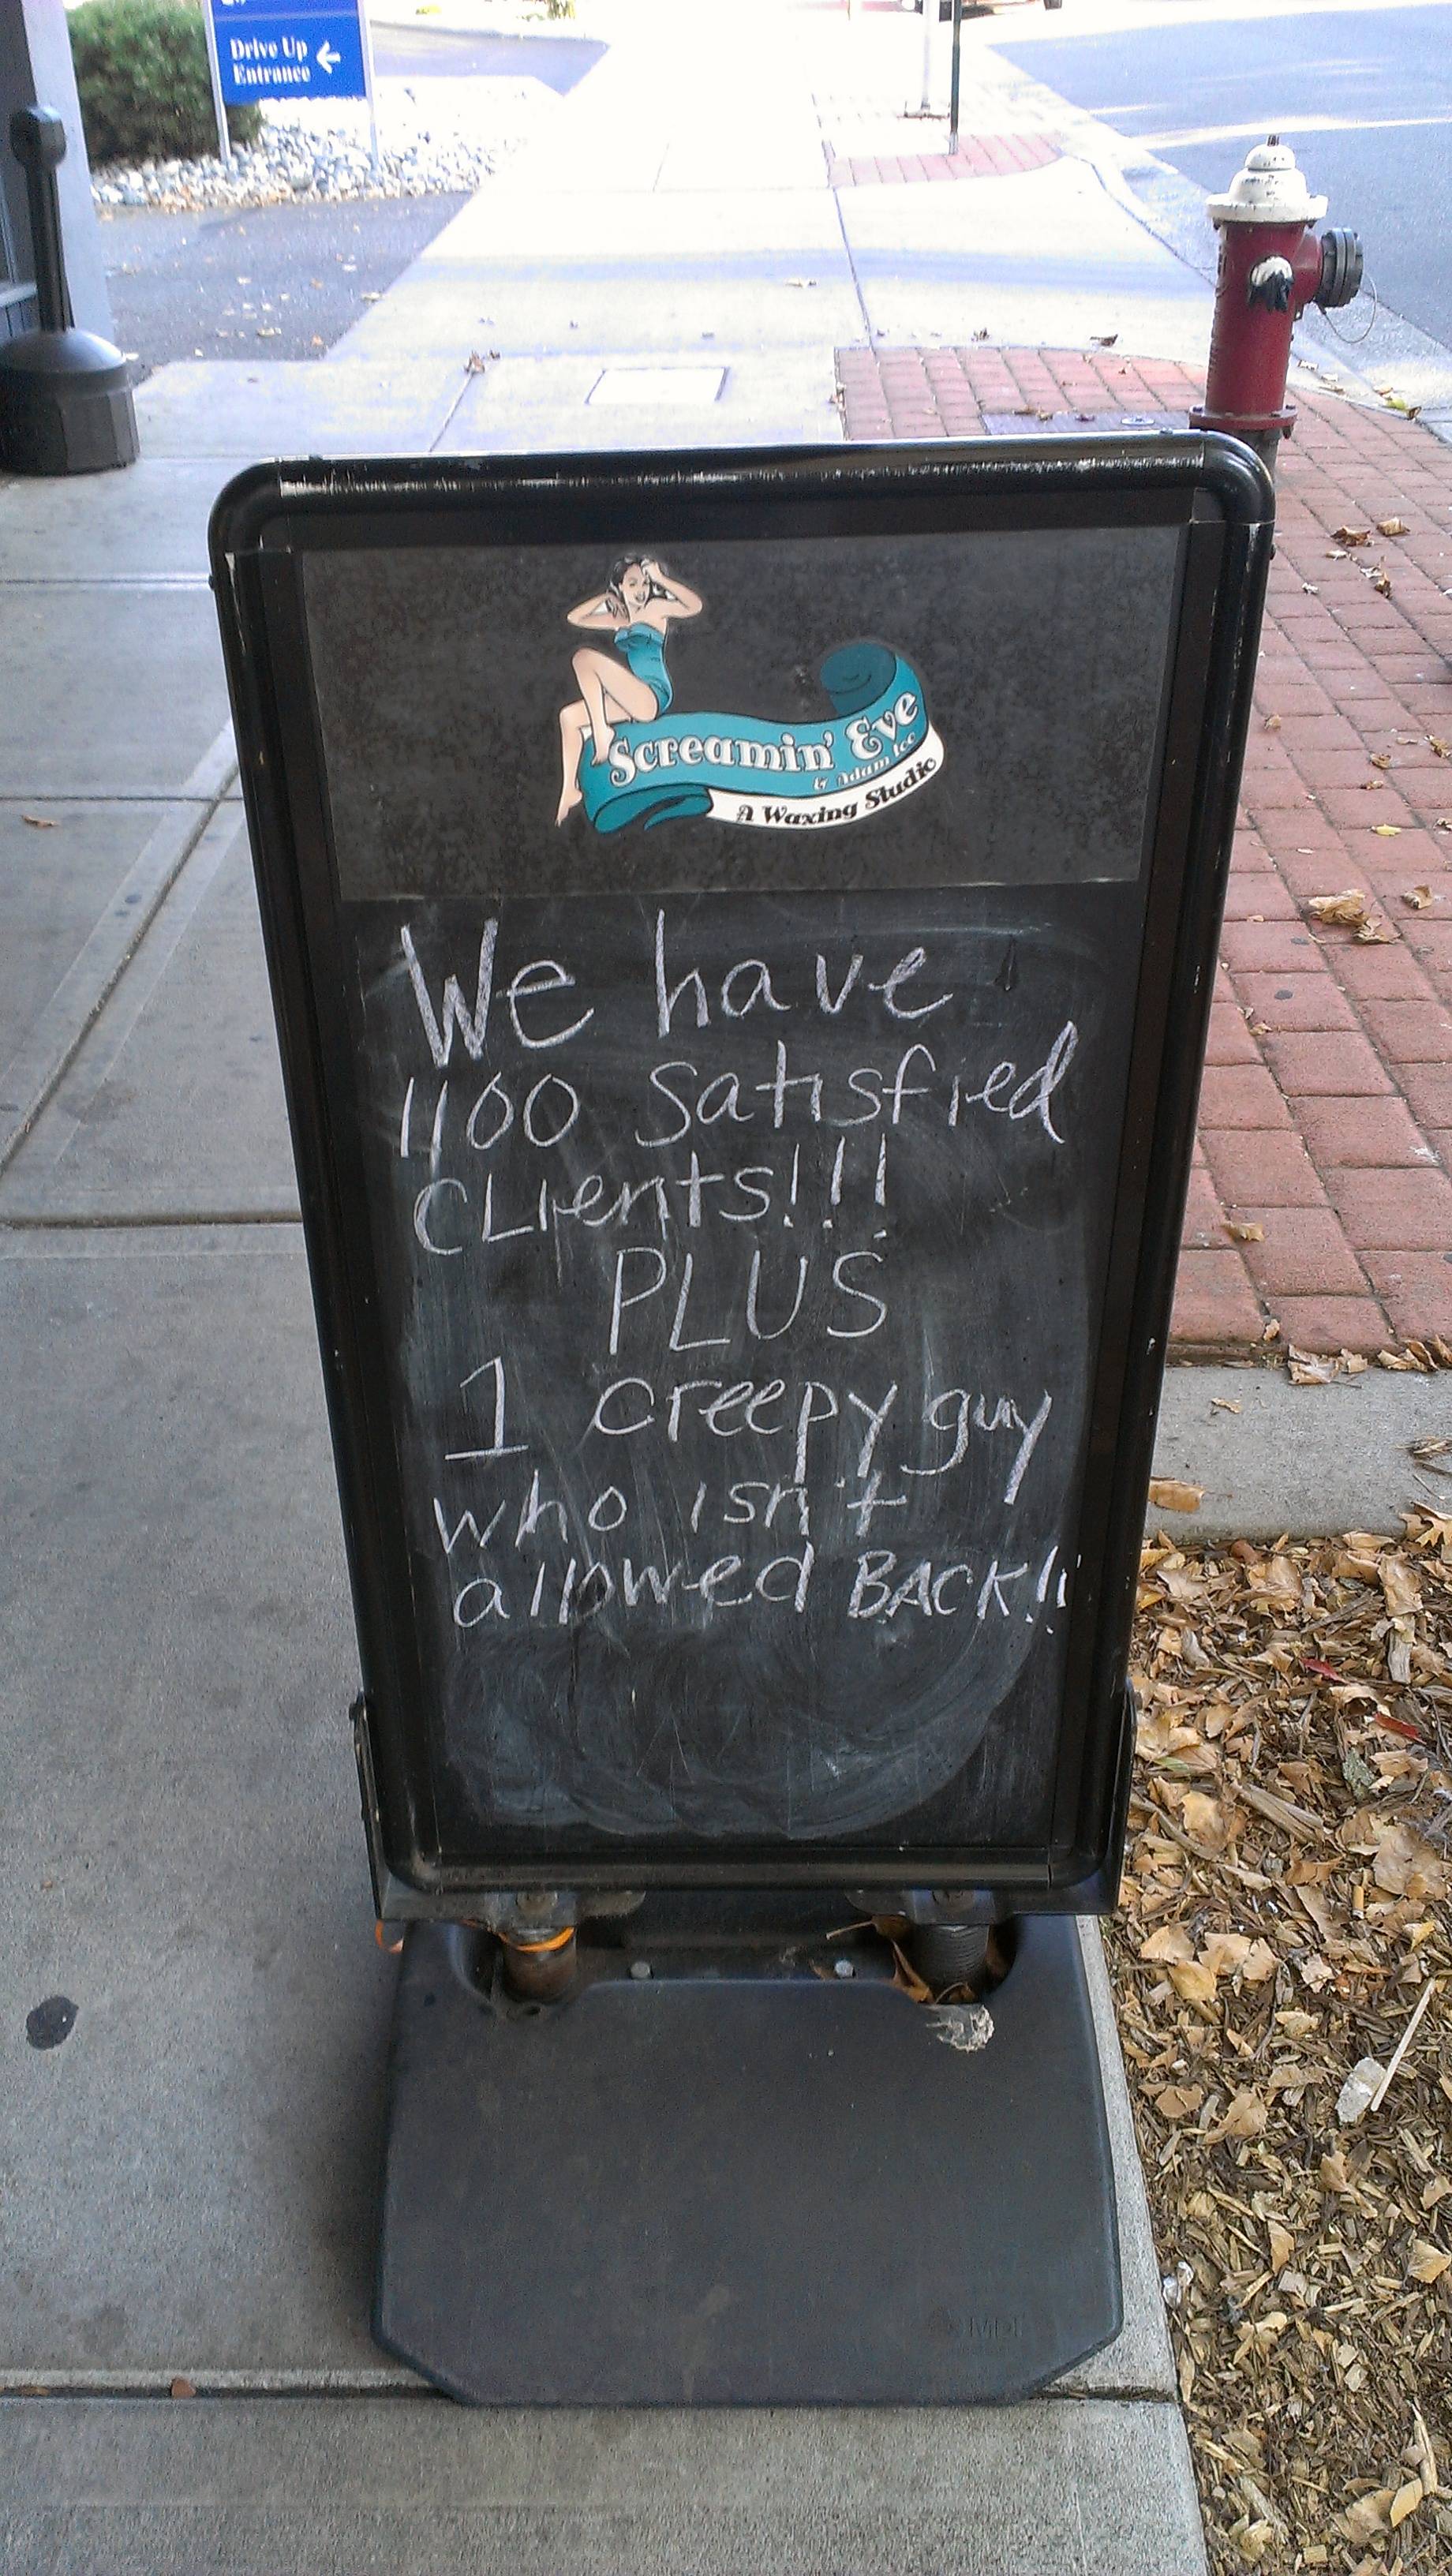 Drive Up
Entrance ←
Screamin' Eve
& Adam too
A Waxing Studio
We have
1100 Satisfied
CLients!!!
PLUS
1 creepy guy
who isn't
allowed BACK!!!